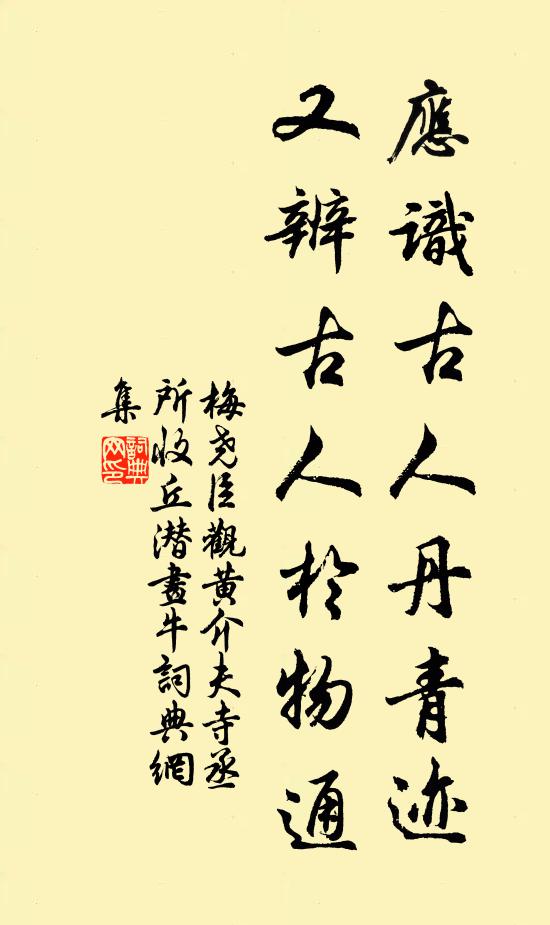 應識古人丹青迹
又辨古人於物通
梅尧臣觀黄介夫寺丞
所收丘潜畫牛詞典網
集
詞典
网印